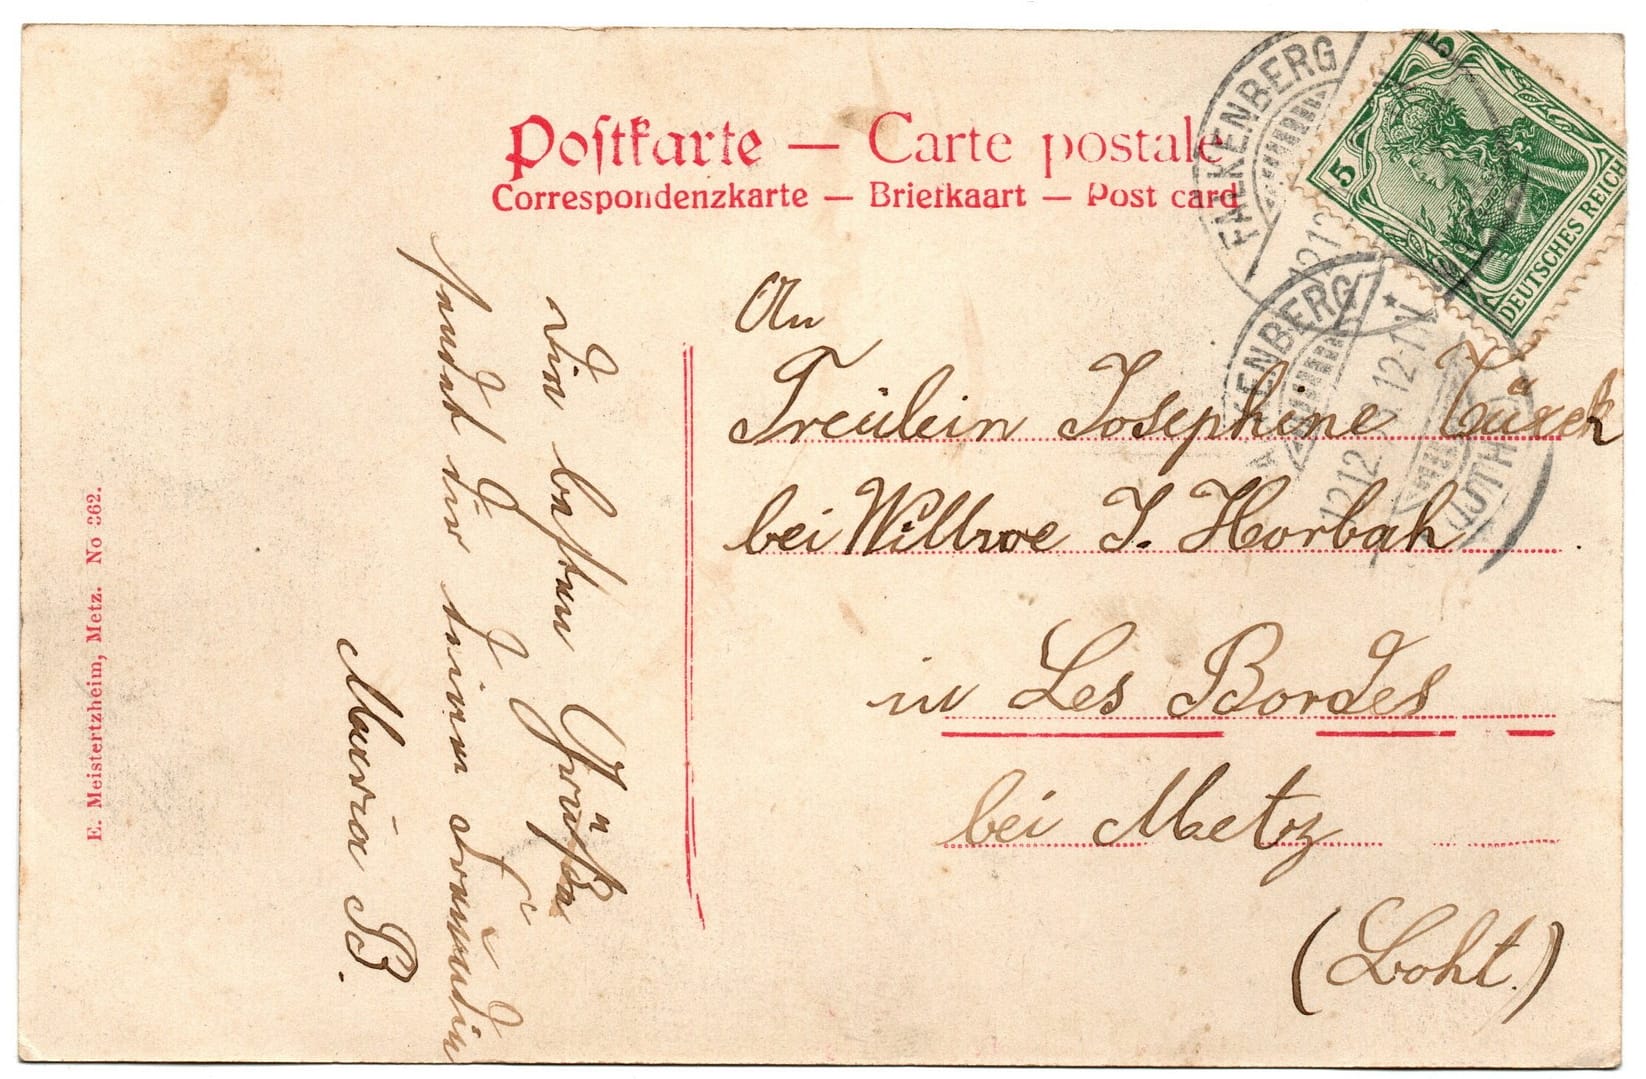 Postkarte — Carte postale
Correspondenzkarte — Briefkaart — Post card
FALKENBERG
1212
DEUTSCHES REICH
5
5
FALKENBERG
1212 12-1N
(LOTH
An
Freülein Josephine
bei J. Horbah
in Les Bordes
bei Metz
(Loht.)
Die besten Grüße
sendet dir deine Freundin
Maria B.
E. Meistertzheim, Metz. No 362.